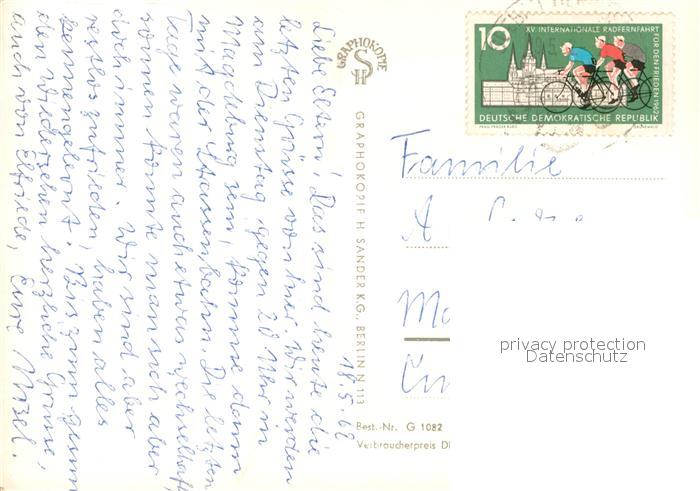 18.5.62
Liebe Eltern! Das sind heute die
letzten Grüsse von hier. Wir werden
am Dienstag gegen 20 Uhr in
Magdeburg sein, komme dann
mit der Strassenbahn. Die letzten
Tage waren auch etwas wechselhaft
sonnen konnte man sich aber
doch immer. Wir sind aber
restlos zufrieden, haben alles
kennengelernt. Bis zum gesun
den Wiedersehen herzliche Grüsse,
auch von Elfriede, Eure
GRAPHOKOPIE
H S
GRAPHOKOPIE H. SANDER KG., BERLIN N 113
Best.-Nr. G 1082
Verbraucherpreis D
10
XV. INTERNATIONALE RADFERNFAHRT
FÜR DEN FRIEDEN 1962
DEUTSCHE DEMOKRATISCHE REPUBLIK
PRAG PRAGER BURG
Familie
A
privacy protection
Datenschutz